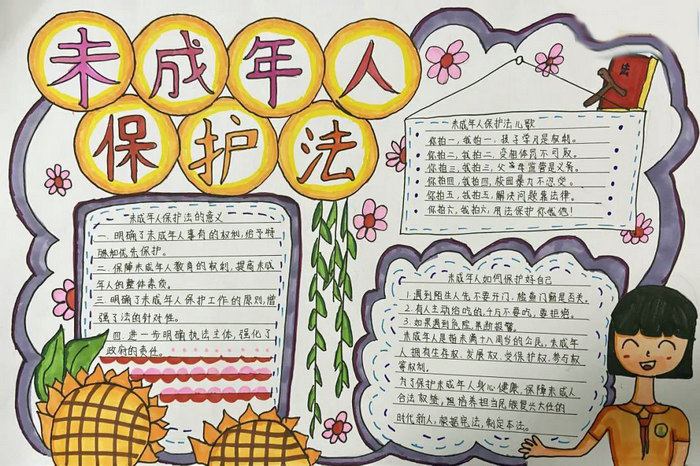 未成年人
保护法
法
未成年人保护法儿歌
你拍一,我拍一,孩子学习是权利。
你拍二,我拍二,变相体罚不可取。
你拍三,我拍三,父母监管是义务。
你拍四,我拍四,校园暴力不忍受。
你拍五,我拍五,解决问题靠法律。
你拍六,我拍六,用法保护你做他!
未成年人保护法的意义
一.明确了未成年人享有的权利,给予特
殊和优先保护。
二.保障未成年人教育的权利,提高未成
年人的整体素质。
三.明确了未成年人保护工作的原则,增
强了法的针对性。
四.进一步明确执法主体,强化了
政府的责任。
未成年人如何保护好自己
1.遇到陌生人先不要开门,检查门窗是否关。
2.有人主动给吃的,千万不要吃,要拒绝。
3.如果遇到危险,果断报警。
未成年人是指未满十八周岁的公民,未成年
人拥有生存权.发展权.受保护权.参与权
等权利。
为了保护未成年人身心健康,保障未成人
合法权益,培养担当民族复兴大任的
时代新人,根据宪法,制定本法。